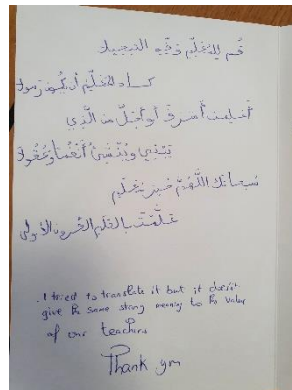 قم للمعَلِّم وفّه التبجيلا
كاد المعَلِّم أن يكون رسولا
أعلمتَ أشرفَ أو أجلَّ من الَّذي
يبني وينشئ أنفُسًا وعُقُولا
سبحانك اللَّهُمَّ خير معلِّم
عَلَّمْتَ بالقلم القرون الأولى
. I tried to translate it but it doesn't
give the same strong meaning to the value
of our teachers
Thank you